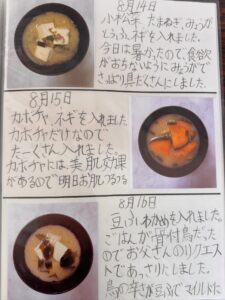 8月14日
小松菜、たまねぎ、みょうが
とうふ、ネギを入れました。
今日は暑かったので、食欲
がおちないようにみょうがで
さっぱり具だくさんにしました。
8月15日
カボチャ、ネギを入れました
カボチャだけなので
たーくさん入れました。
カボチャには、美肌効果
があるので明日お肌つるつる
8月16日
豆ふ、わかめを入れました。
ごはんが骨付鳥だった
のでお父さんのリクエス
トであっさりにしました。
鳥の辛さが豆ふでマイルドに